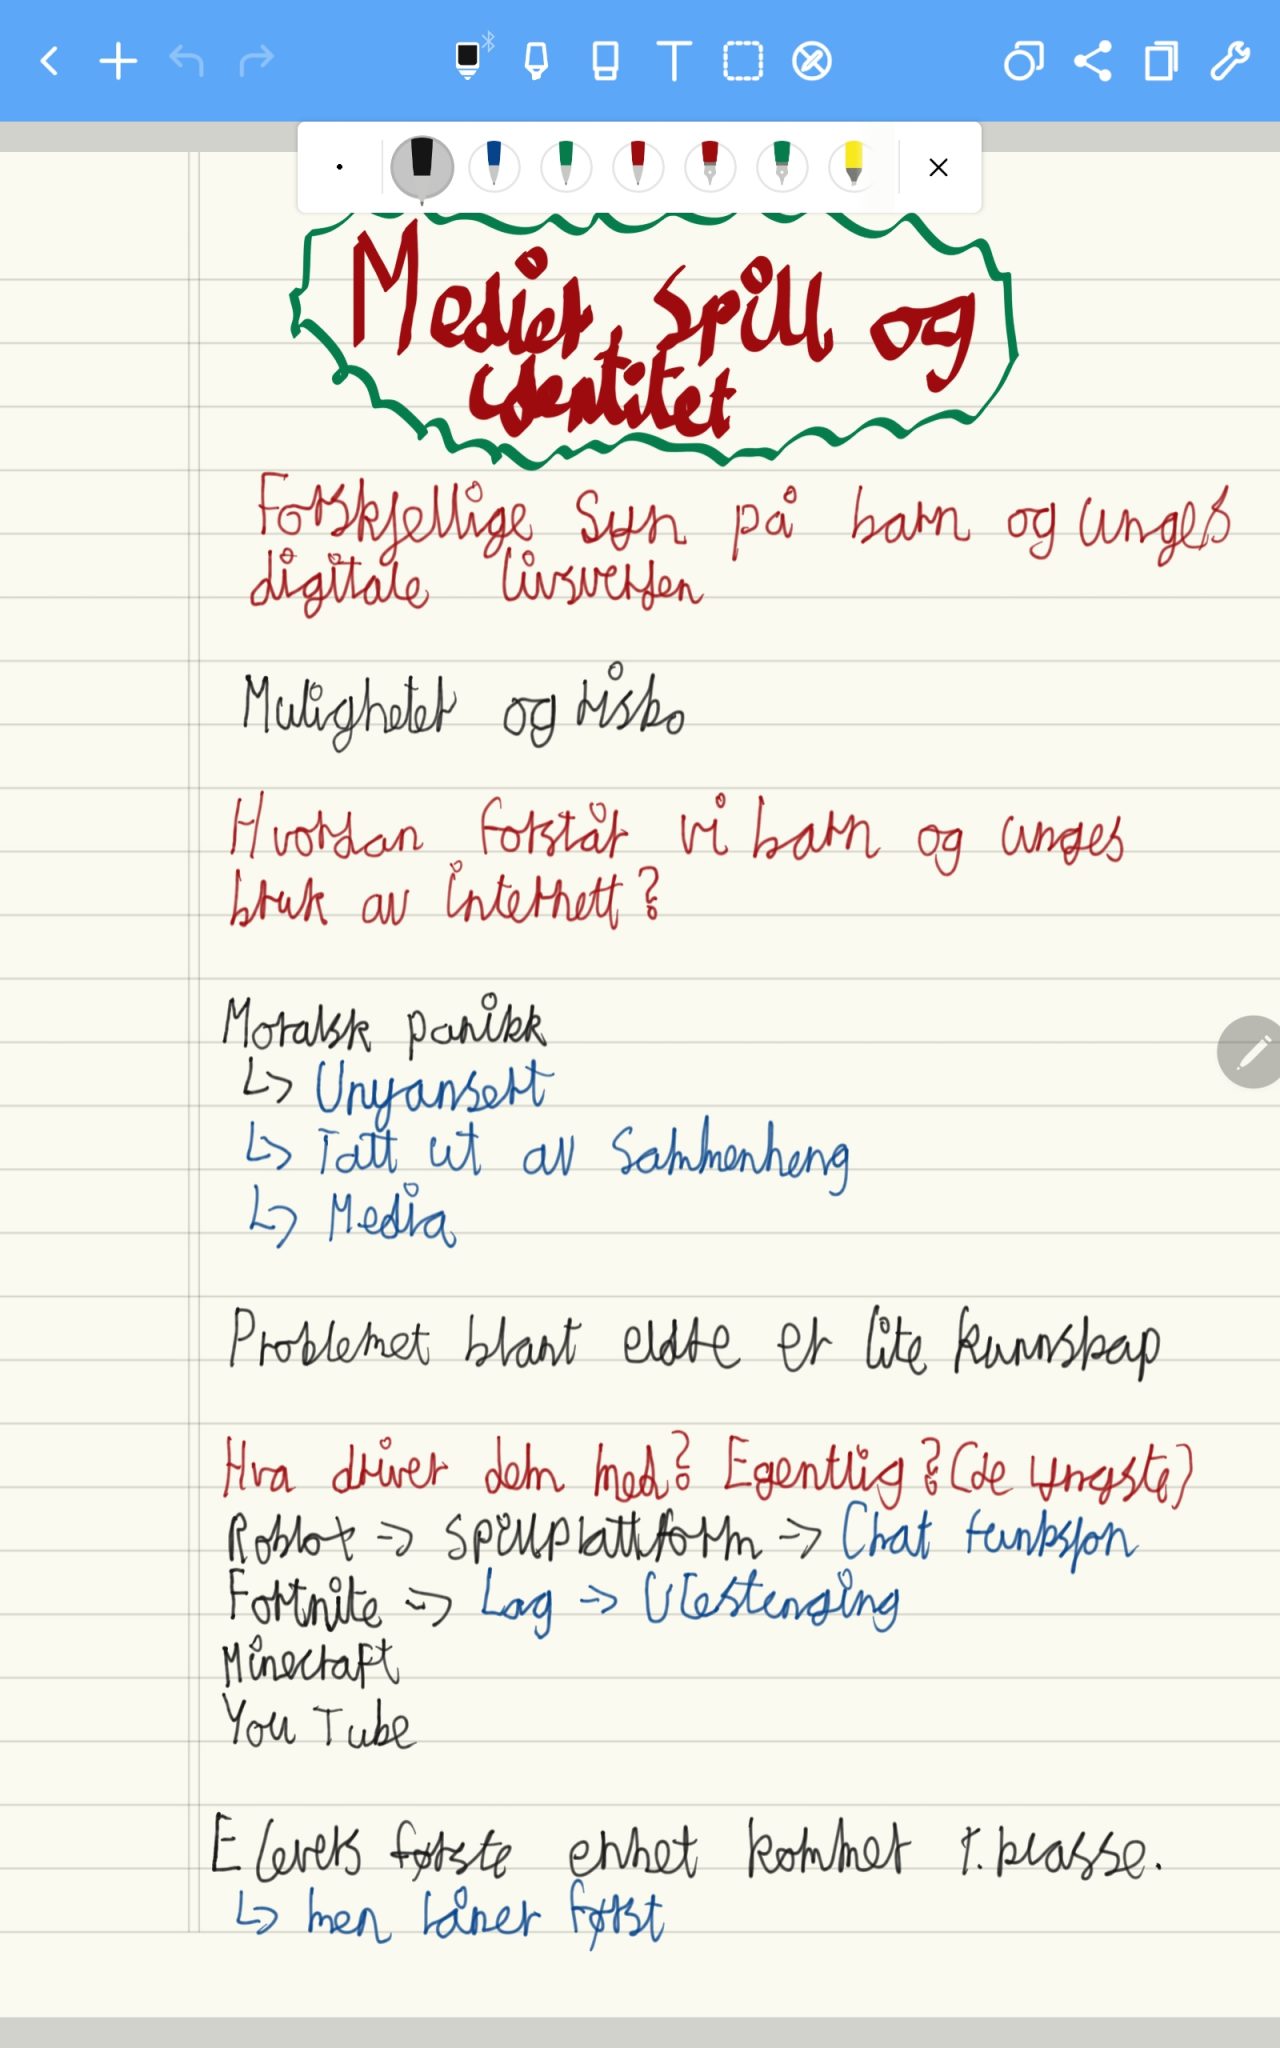 Medier, spill og
identitet
Forskjellige syn på barn og unges
digitale livsverden
Muligheter og risko
Hvordan forstår vi barn og unges
bruk av internett?
Moralsk panikk
↳ Unyansert
↳ Tatt ut av sammenheng
↳ Media
Problemet blant eldre er lite kunnskap
Hva driver dem med? Egentlig? (de yngste)
Roblox -> spillplattform -> Chat funksjon
Fortnite -> Lag -> Utestenging
Minecraft
YouTube
Elevers første enhet kommer 1. klasse.
↳ men låner først